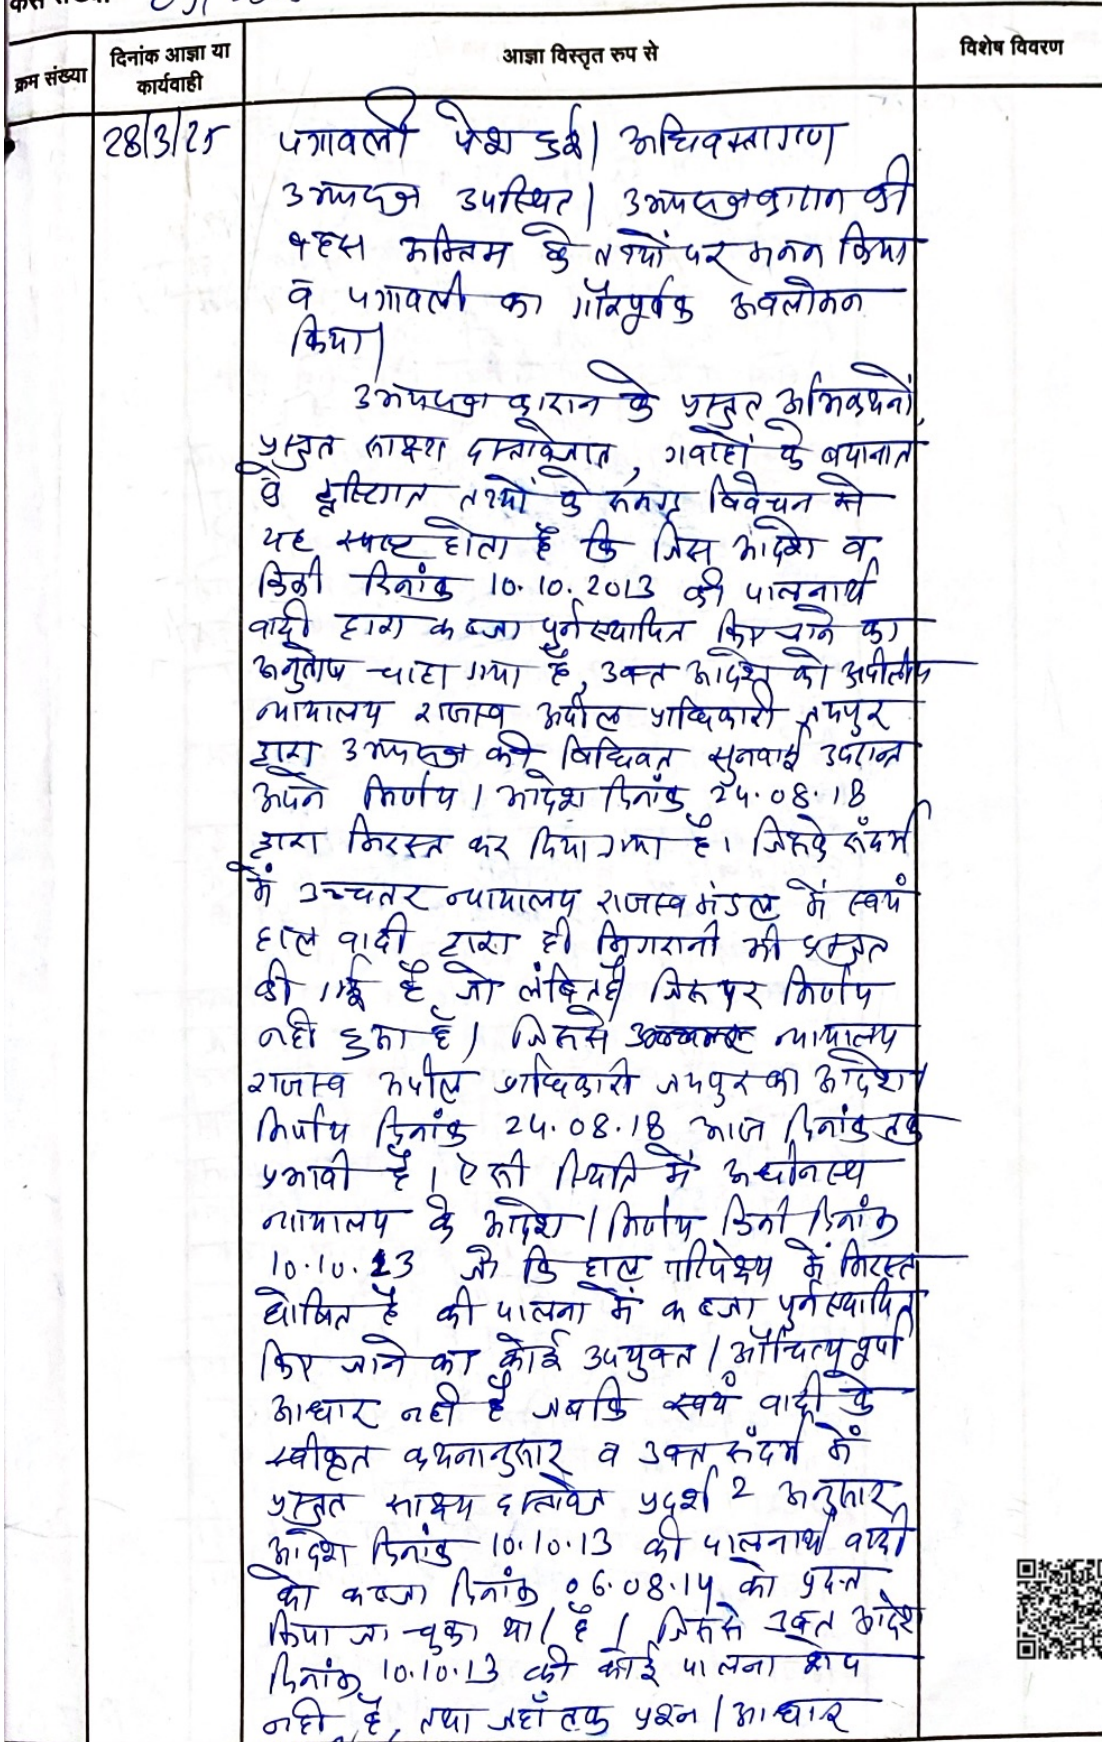 क्रम संख्या
दिनांक आज्ञा या
कार्यवाही
आज्ञा विस्तृत रुप से
विशेष विवरण
28/3/25
पत्रावली पेश हुई। अधिवक्तागण
उभयपक्ष उपस्थित। उभयपक्षकारान की
बहस अन्तिम के तथ्यों पर मनन किया
व पत्रावली का गौरपूर्वक अवलोकन
किया।
उभयपक्षकारान के प्रस्तुत अभिवचनों,
प्रस्तुत साक्ष्य दस्तावेजात, गवाहों के बयानात
व दृष्टिगत तथ्यों के समग्र विवेचन से
यह स्पष्ट होता है कि जिस आदेश व
डिक्री दिनांक 10.10.2013 की पालनार्थ
वादी द्वारा कब्जा पुर्नस्थापित किए जाने का
अनुतोष चाहा गया है, उक्त आदेश को अपीलीय
न्यायालय राजस्व अपील प्राधिकारी जयपुर
द्वारा उभयपक्ष की विधिवत सुनवाई उपरान्त
अपने निर्णय/आदेश दिनांक 24.08.18
द्वारा निरस्त कर दिया गया है। जिसके संदर्भ
में उच्चतर न्यायालय राजस्व मंडल में स्वयं
हाल वादी द्वारा ही निगरानी भी प्रस्तुत
की गई है जो लंबित है जिस पर निर्णय
नही हुआ है। जिससे न्यायालय
राजस्व अपील प्राधिकारी जयपुर का आदेश/
निर्णय दिनांक 24.08.18 आज दिनांक तक
प्रभावी है। ऐसी स्थिति में अधीनस्थ
न्यायालय के आदेश/निर्णय डिक्री दिनांक
10.10.13 जो कि हाल परिपेक्ष्य में निरस्त
घोषित है की पालना में कब्जा पुर्नस्थापित
किए जाने का कोई उपयुक्त/औचित्यपूर्ण
आधार नही है जबकि स्वयं वादी के
स्वीकृत कथनानुसार व उक्त संदर्भ में
प्रस्तुत साक्ष्य दस्तावेज प्रदर्श 2 अनुसार
आदेश दिनांक 10.10.13 की पालनार्थ वादी
को कब्जा दिनांक 06.08.14 को प्रदत्त
किया जा चुका था/है। जिससे उक्त आदेश
दिनांक 10.10.13 की कोई पालना शेष
नही है, तथा जहाँ तक प्रश्न/आधार